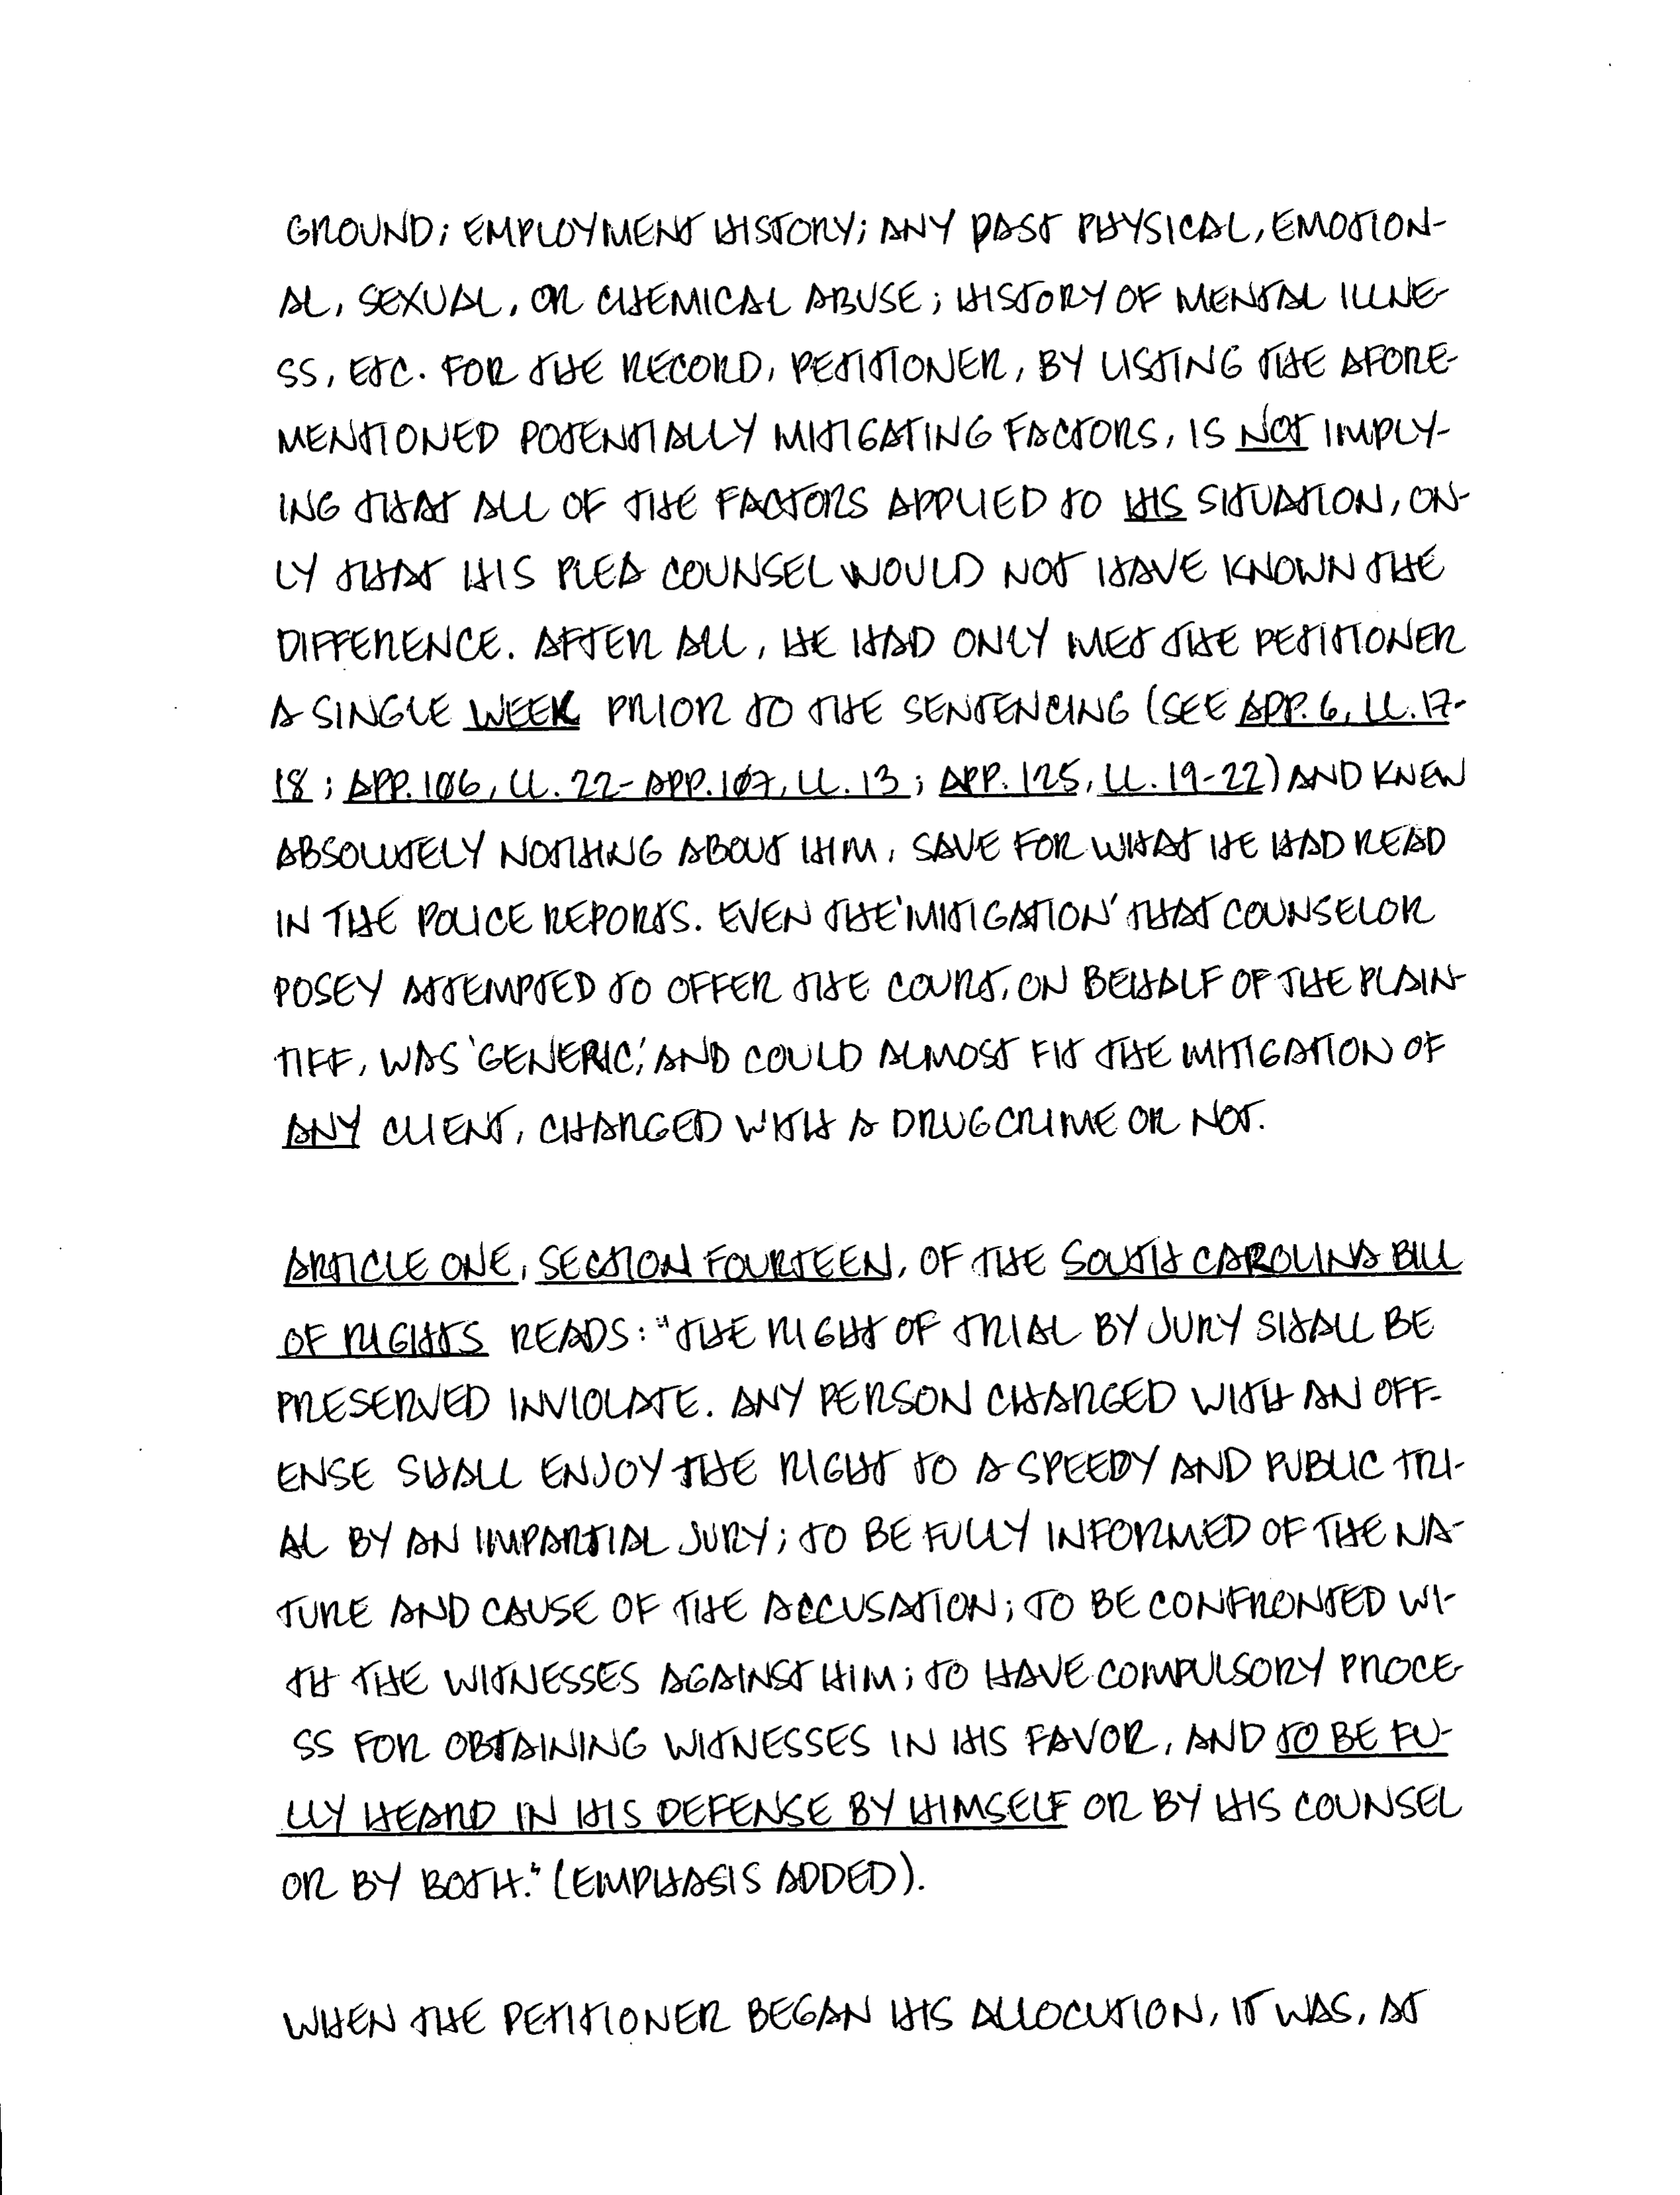 GROUND; EMPLOYMENT HISTORY; ANY PAST PHYSICAL, EMOTION-
AL, SEXUAL, OR CHEMICAL ABUSE; HISTORY OF MENTAL ILLNE-
SS, ETC. FOR THE RECORD, PETITIONER, BY LISTING THE AFORE-
MENTIONED POTENTIALLY MITIGATING FACTORS, IS NOT IMPLY-
ING THAT ALL OF THE FACTORS APPLIED TO HIS SITUATION, ON-
LY THAT HIS PLEA COUNSEL WOULD NOT HAVE KNOWN THE
DIFFERENCE. AFTER ALL, HE HAD ONLY MET THE PETITIONER
A SINGLE WEEK PRIOR TO THE SENTENCING (SEE APP. 6, LL. 17-
18; APP. 106, LL. 22- APP. 107, LL. 13; APP. 125, LL. 19-22) AND KNEW
ABSOLUTELY NOTHING ABOUT HIM, SAVE FOR WHAT HE HAD READ
IN THE POLICE REPORTS. EVEN THE 'MITIGATION' THAT COUNSELOR
POSEY ATTEMPTED TO OFFER THE COURT, ON BEHALF OF THE PLAIN-
TIFF, WAS 'GENERIC,' AND COULD ALMOST FIT THE MITIGATION OF
ANY CLIENT, CHARGED WITH A DRUG CRIME OR NOT.
ARTICLE ONE, SECTION FOURTEEN, OF THE SOUTH CAROLINA BILL
OF RIGHTS READS: "THE RIGHT OF TRIAL BY JURY SHALL BE
PRESERVED INVIOLATE. ANY PERSON CHARGED WITH AN OFF-
ENSE SHALL ENJOY THE RIGHT TO A SPEEDY AND PUBLIC TRI-
AL BY AN IMPARTIAL JURY; TO BE FULLY INFORMED OF THE NA-
TURE AND CAUSE OF THE ACCUSATION; TO BE CONFRONTED WI-
TH THE WITNESSES AGAINST HIM; TO HAVE COMPULSORY PROCE-
SS FOR OBTAINING WITNESSES IN HIS FAVOR, AND TO BE FU-
LLY HEARD IN HIS DEFENSE BY HIMSELF OR BY HIS COUNSEL
OR BY BOTH." (EMPHASIS ADDED).
WHEN THE PETITIONER BEGAN HIS ALLOCUTION, IT WAS, AT